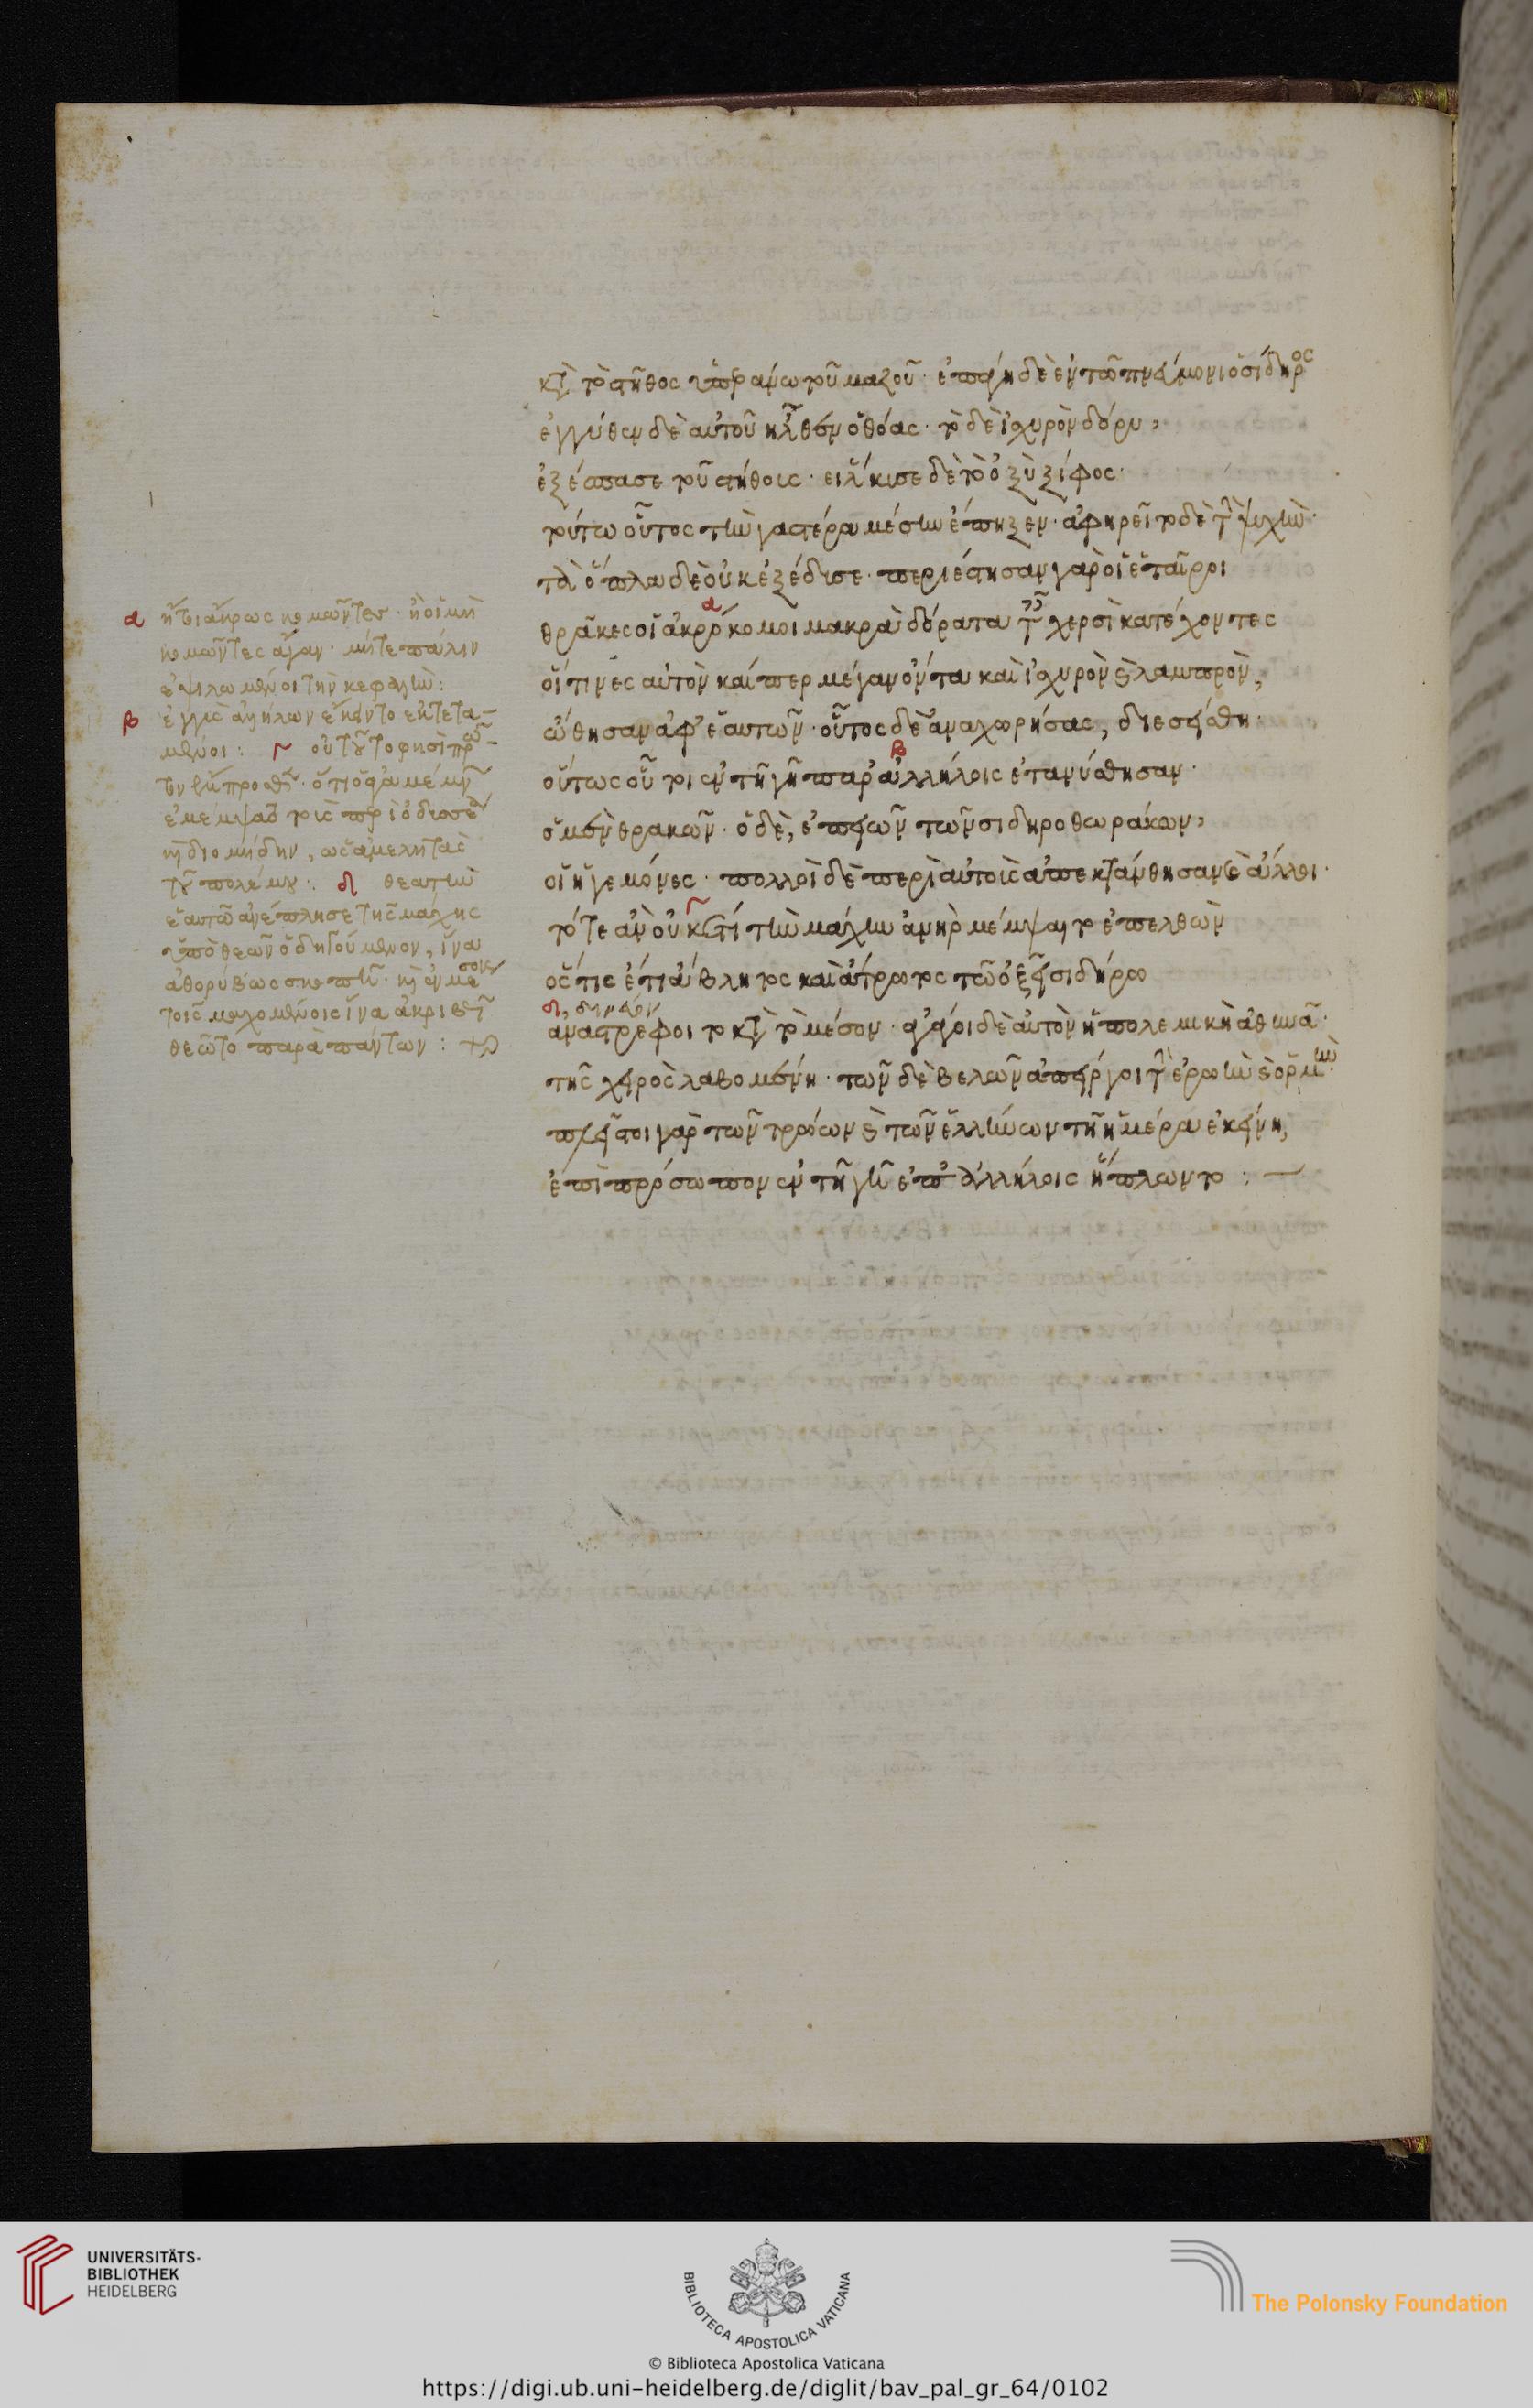 κατὰ τὸ στῆθος ὑπεράνω τοῦ μαζοῦ· ἐπάγη δὲ ἐν τῶ πνεύμονι ὁ σίδηρος
ἐγγύθεν δὲ αὐτοῦ ἦλθεν ὁ θόας· τὸ δὲ ἰσχυρὸν δόρυ,
ἐξέσπασε τοῦ στήθους· εἵλκυσε δὲ τὸ ὀξὺ ξίφος·
τούτω οὗτος τὴν γαστέρα μέσην ἔπληξεν· ἀφηρεῖτο δὲ τὴν ψυχήν·
τὰ ὅπλα δὲ οὐκ ἐξέδυσε· περιέστησαν γὰρ οἱ ἑταῖροι
θρᾶκες οἱ ἀκρόκομοι μακρὰ δόρατα ταῖς χερσὶ κατέχοντες
οἵτινες αὐτὸν καίπερ μέγαν ὄντα καὶ ἰσχυρὸν καὶ λαμπρὸν,
ὤθησαν ἀφ' ἑαυτῶν· οὗτος δὲ ἀναχωρήσας, διεσείσθη·
οὕτως οὗτοι ἐν τῆ γῆ παρ' ἀλλήλοις ἐτανύσθησαν·
ὁ μὲν θρακῶν· ὁ δὲ, ἐπειῶν τῶν σιδηροθωράκων,
οἱ ἡγεμόνες· πολλοὶ δὲ περὶ αὐτοὺς ἀπεκτάνθησαν καὶ ἄλλοι·
τότε ἂν οὐκέτι τὴν μάχην ἀνὴρ μέμψαιτο ἐπελθὼν
ὅστις ἔτι ἄβλητος καὶ ἄτρωτος τῶ ὀξεῖ σιδήρω
ἀναστρέφοιτο κατὰ τὸ μέσον· ἄγοι δὲ αὐτὸν ἡ πολεμικὴ ἀθηνᾶ·
τῆς χειρὸς λαβομένη· τῶν δὲ βελῶν ἀπείργοι τὴν ἐρωὴν καὶ ὁρμήν·
πλεῖστοι γὰρ τῶν τρώων καὶ τῶν ἑλλήνων τῆ ἡμέρα ἐκείνη,
ἐπὶ πρόσωπον ἐν τῆ γῆ ἐπ' ἀλλήλοις ἥπλωντο :
α ἤτοι ἄκρως κομῶντες· ἢ οἱ μὴ
κομῶντες ἄγαν· μήτε πάλιν
ἐψιλωμένοι τὴν κεφαλήν:
β ἐγγὺς ἀλλήλων ἔκειντο ἐκτετα-
μένοι: γ οὐ τοῦτο φησὶ πρὸς
ἔμπροσθεν· ὅτι ὁ ἀγαμέμνων
ἐμέμψατο τοὺς περὶ ὀδυσσέα
καὶ διομήδην, ὡς ἀμελητὰς
τοῦ πολέμου: δ θεατὴν
ἑαυτῶ ἀνέπλησε τῆς μάχης
ὑπὸ θεῶν ὁδηγούμενον, ἵνα
ἀθορύβως σκοπῆ· καὶ ἐν μέσοις
τοῖς μαχομένοις ἵνα ἀκριβῆ
θεῶτο παρὰ πάντων :
UNIVERSITÄTS-
BIBLIOTHEK
HEIDELBERG
BIBLIOTECA APOSTOLICA VATICANA
The Polonsky Foundation
© Biblioteca Apostolica Vaticana
https://digi.ub.uni-heidelberg.de/diglit/bav_pal_gr_64/0102